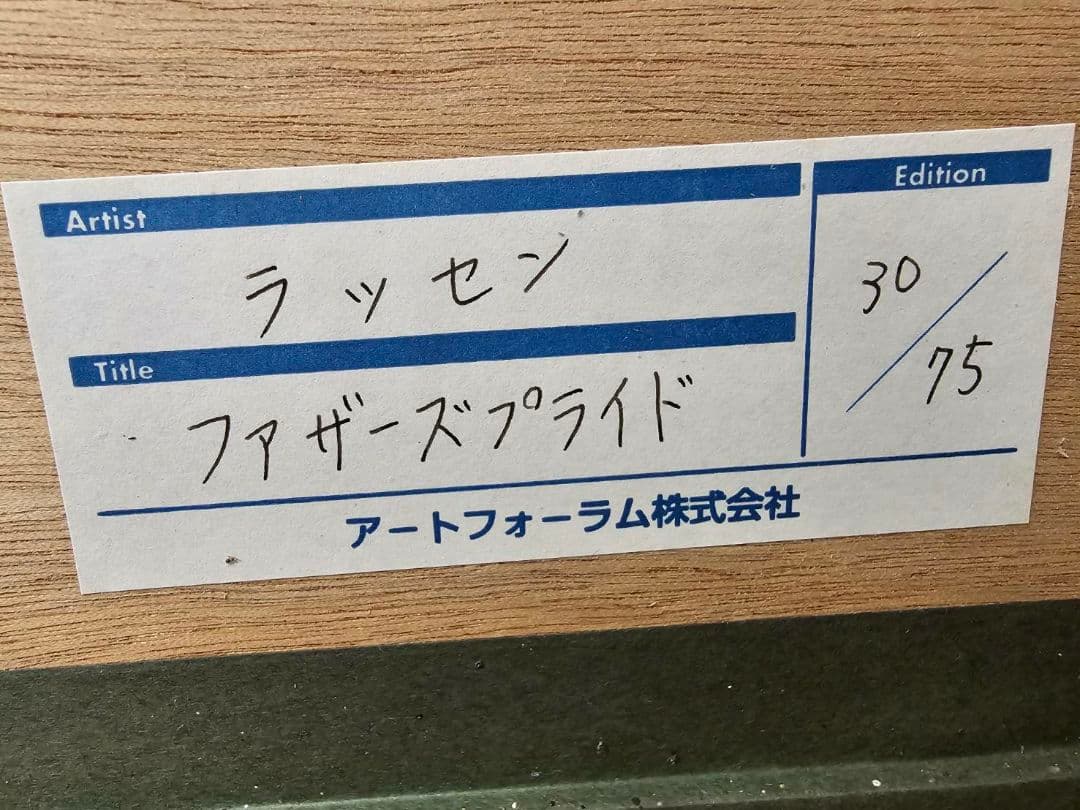 Artist
ラッセン
Title
ファザーズプライド
Edition
30/75
アートフォーラム株式会社